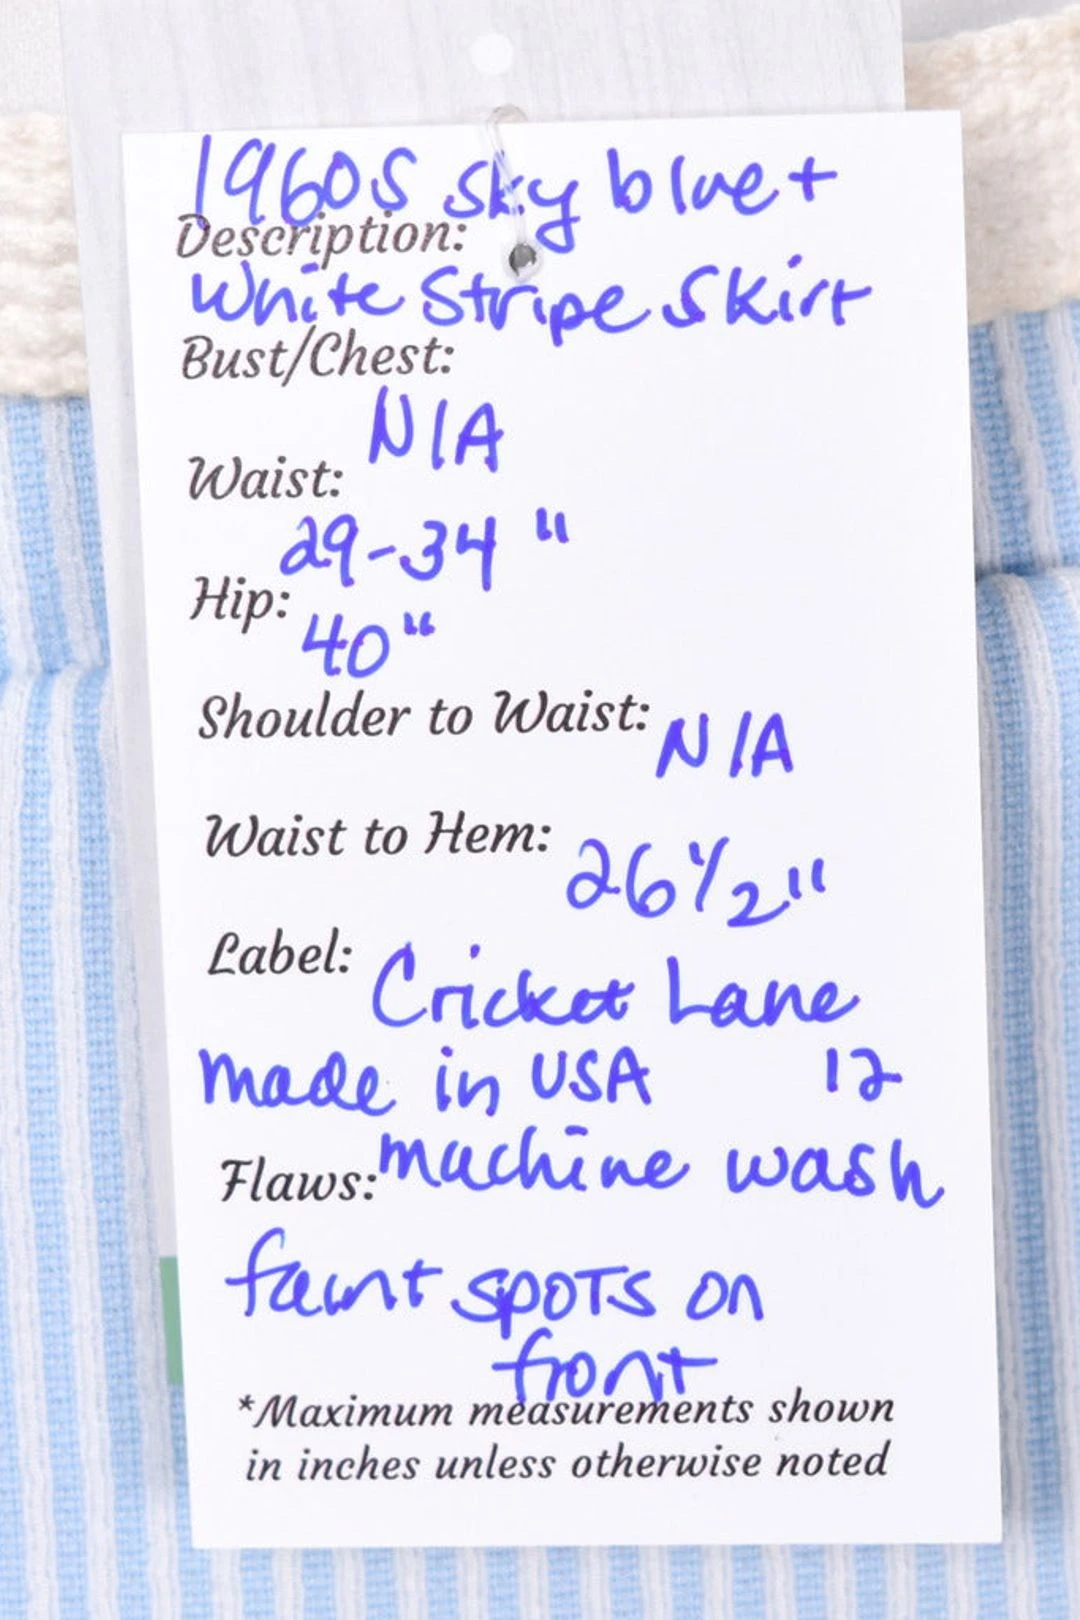 1960s sky blue +
Description:
White Stripe Skirt
Bust/Chest:
N/A
Waist:
29-34"
Hip:
40"
Shoulder to Waist: N/A
Waist to Hem: 26 1/2"
Label: Cricket Lane
made in USA 12
machine wash
Flaws:
faint spots on
front
*Maximum measurements shown
in inches unless otherwise noted